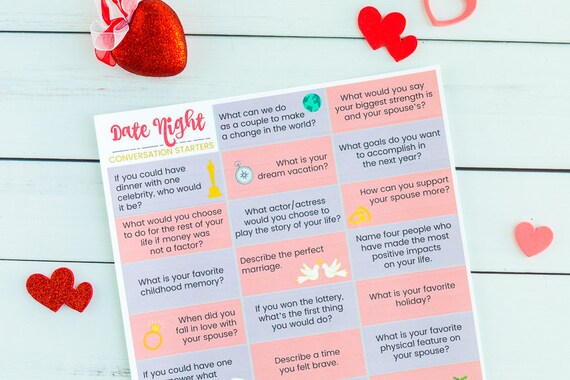 Date Night
CONVERSATION STARTERS
If you could have
dinner with one
celebrity, who would
it be?
What would you choose
to do for the rest of your
life if money was
not a factor?
What is your favorite
childhood memory?
When did you
fall in love with
your spouse?
If you could have one
What can we do
as a couple to make
a change in the world?
What is your
dream vacation?
What actor/actress
would you choose to
play the story of your life?
Describe the perfect
marriage.
If you won the lottery,
what's the first thing
you would do?
Describe a time
you felt brave.
What would you say
your biggest strength is
and your spouse's?
What goals do you want
to accomplish in
the next year?
How can you support
your spouse more?
Name four people who
have made the most
positive impacts
on your life.
What is your favorite
holiday?
What is your favorite
physical feature on
your spouse?